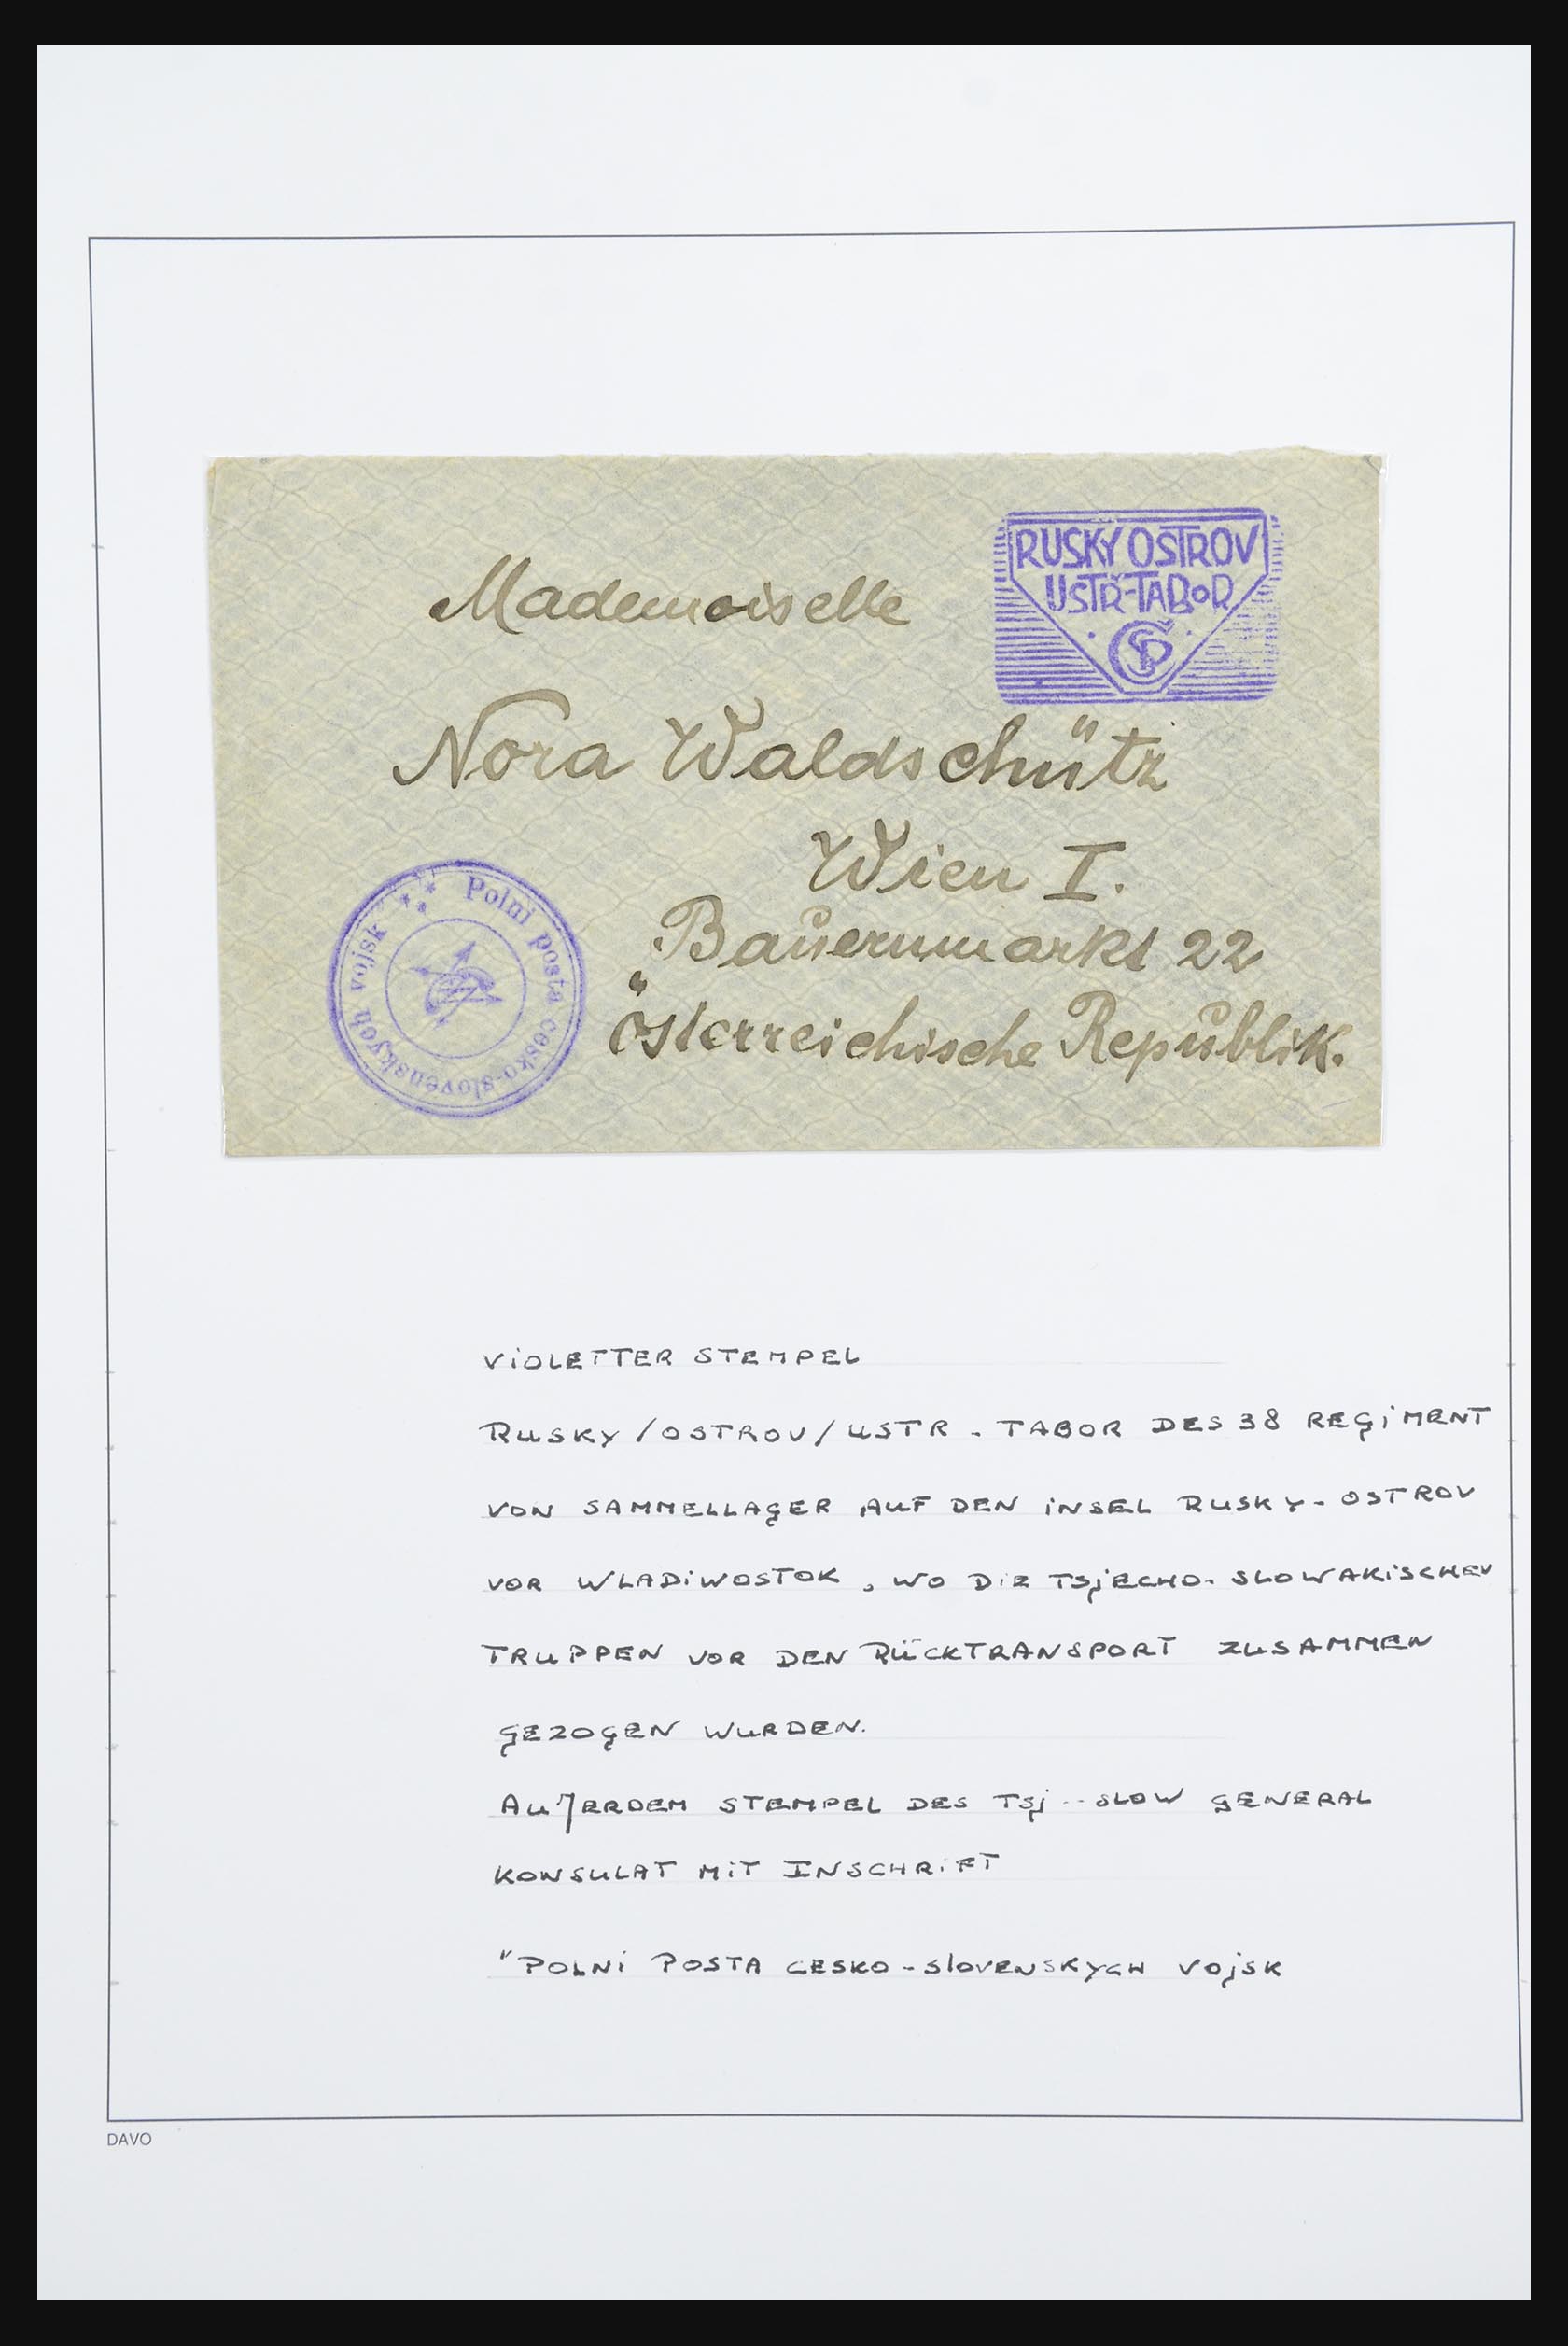 RUSKÝ OSTROV
ÚSTŘ-TÁBOR
ČSP
Mademoiselle
Nora Waldschütz
Wien I.
Bauernmarkt 22
Österreichische Republik.
Polni posta cesko-slovenskych vojsk
VIOLETTER STEMPEL
RUSKY / OSTROV / USTR - TABOR DES 38 REGIMENT
VON SAMMELLAGER AUF DEN INSEL RUSKY - OSTROV
VOR WLADIWOSTOK, WO DIE TSJECHO-SLOWAKISCHEN
TRUPPEN VOR DEN RÜCKTRANSPORT ZUSAMMEN
GEZOGEN WURDEN.
AUßERDEM STEMPEL DES TSJ--SLOW GENERAL
KONSULAT MIT INSCHRIFT
"POLNI POSTA CESKO-SLOVENSKYCH VOJSK
DAVO